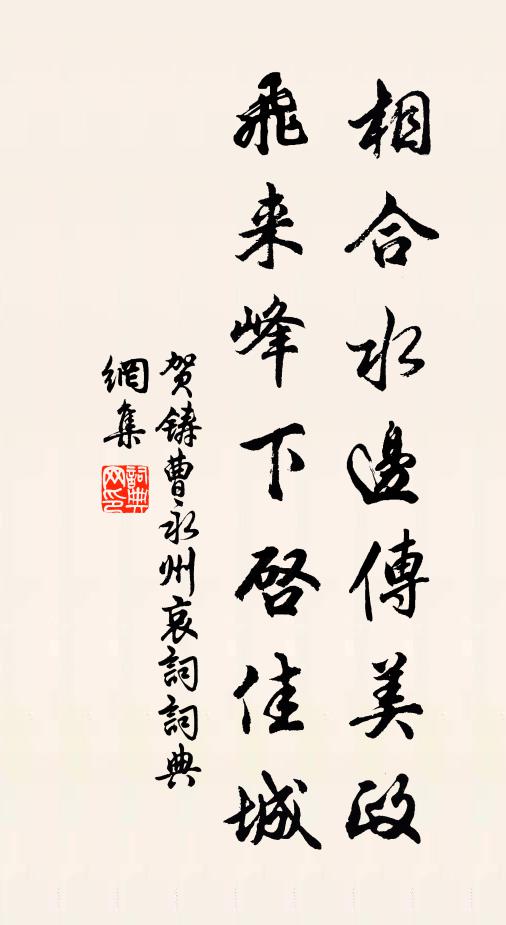 相合水邊傳美政
飛来峰下啓佳城
贺鑄曹永州哀詞詞典
網集
詞典网印